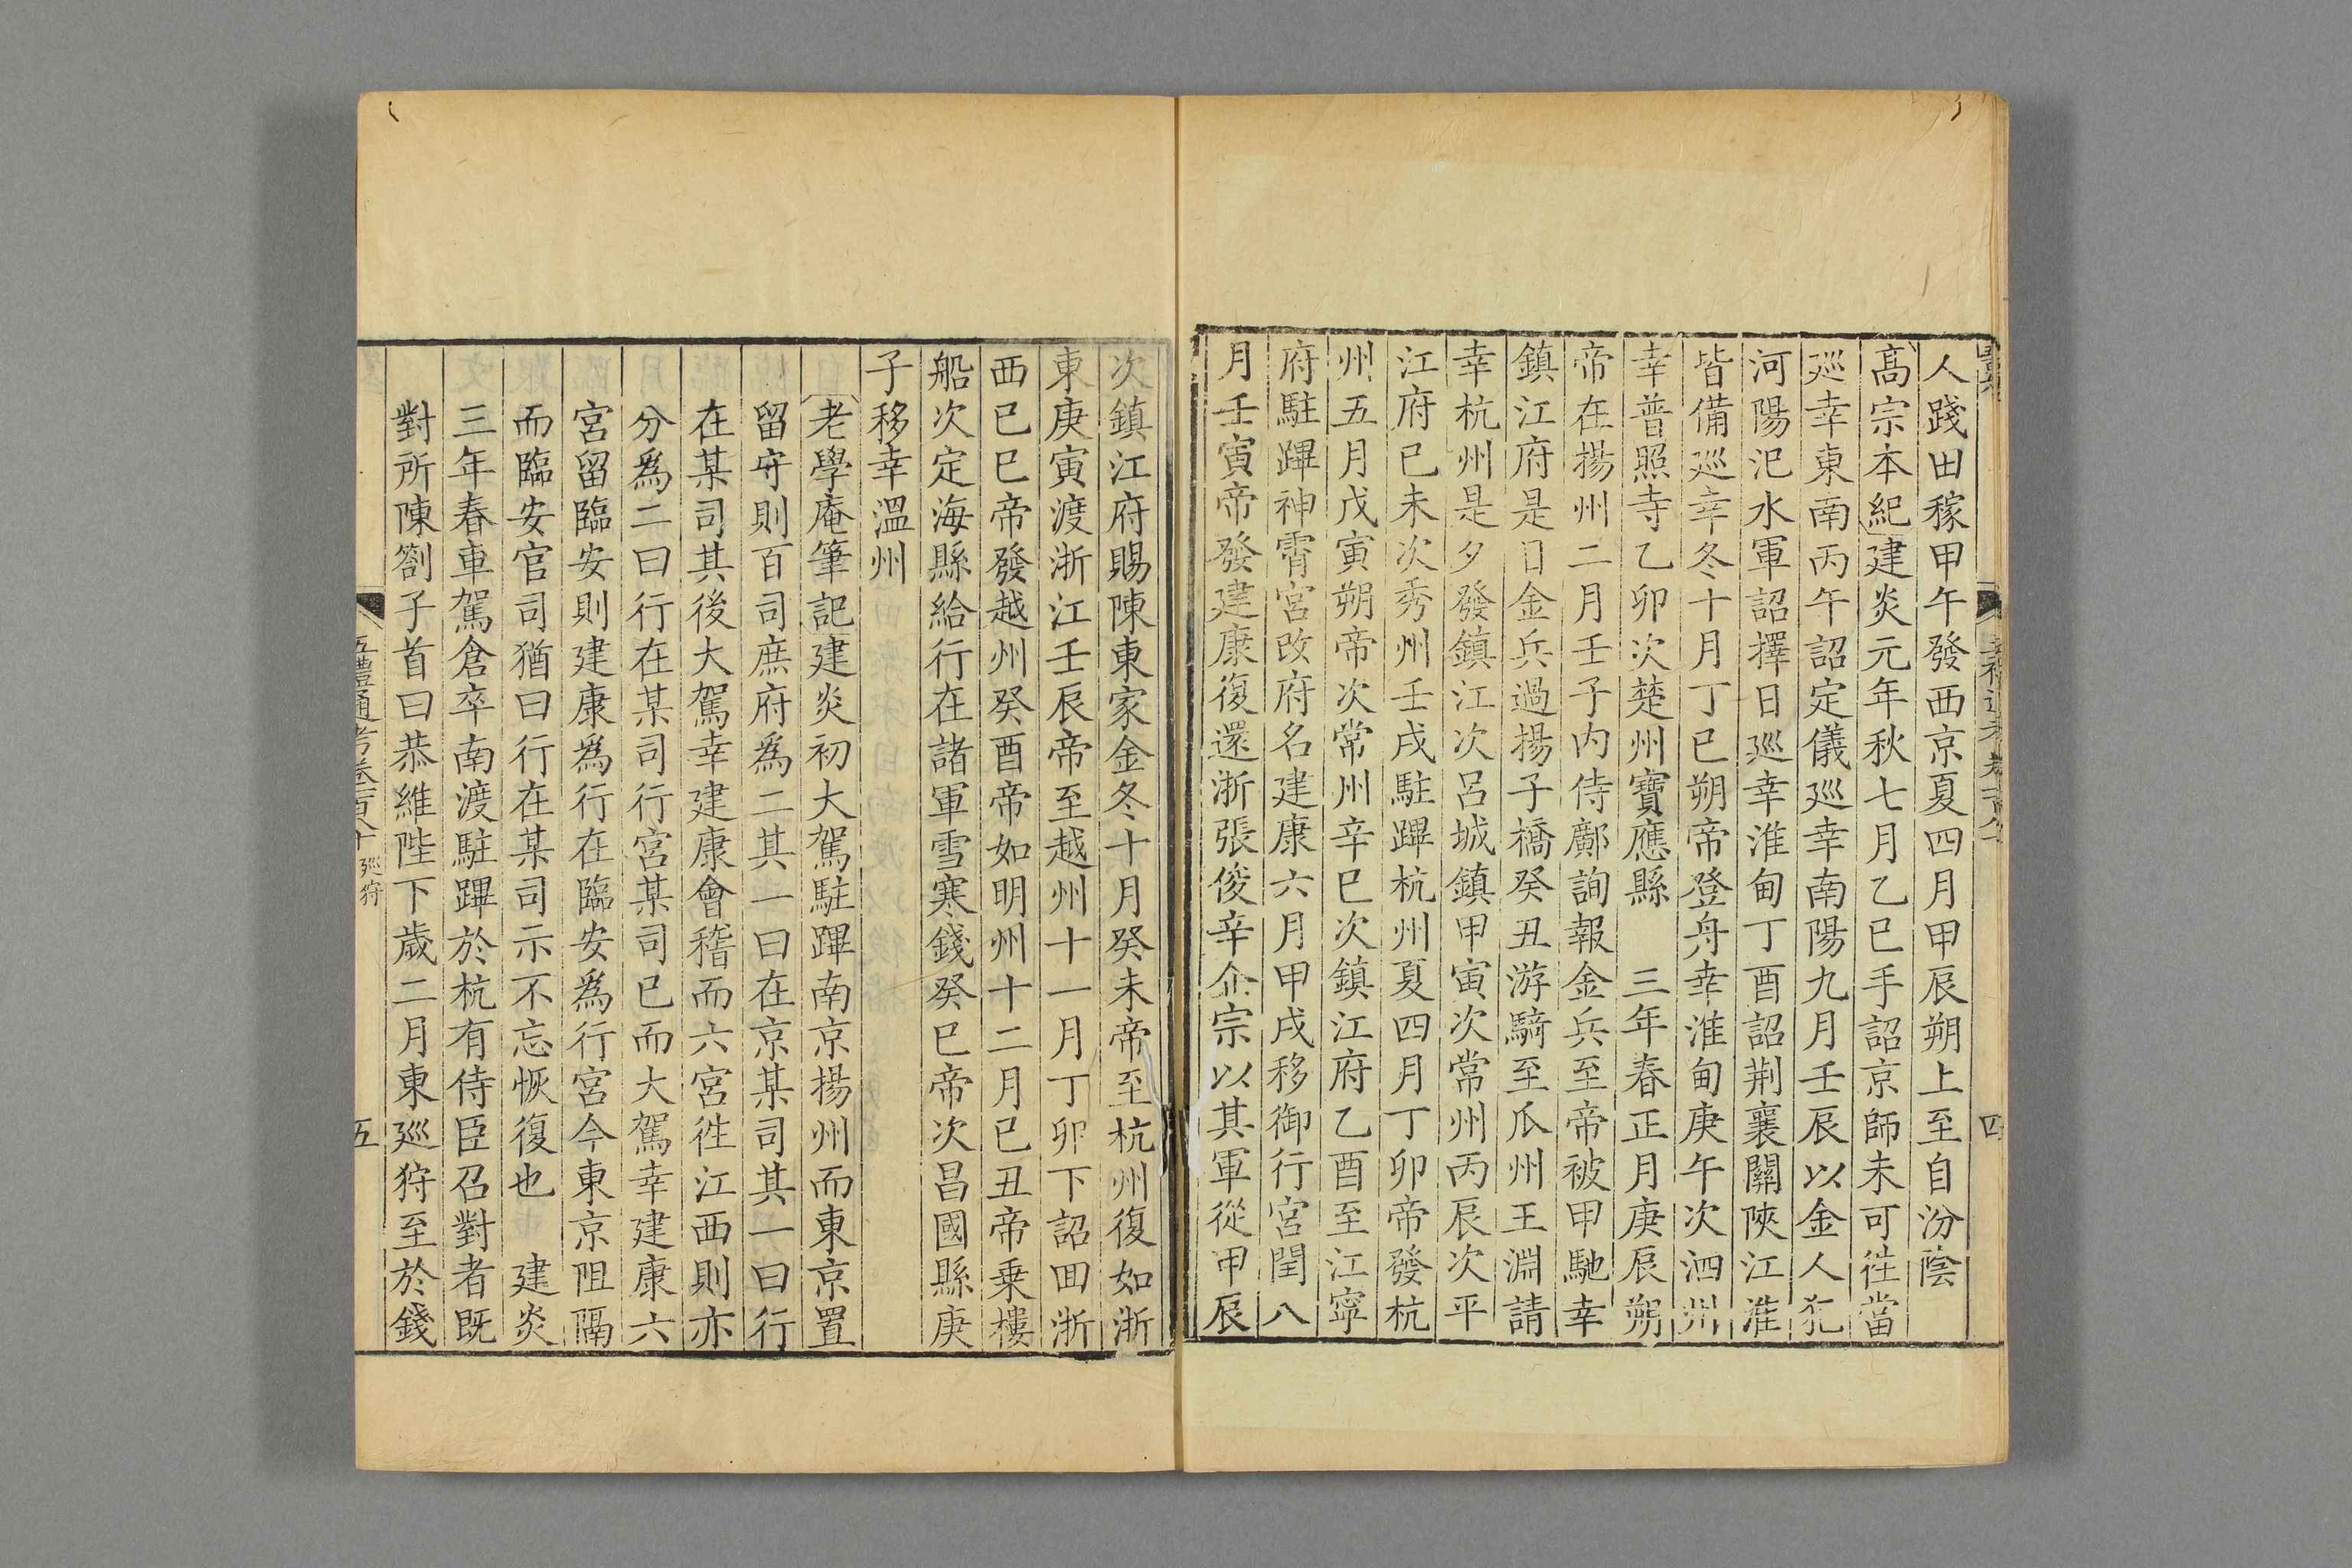 人踐田稼甲午發西京夏四月甲辰朔上至自汾陰
髙宗本紀建炎元年秋七月乙巳手詔京師未可徃當
廵幸東南丙午詔定儀廵幸南陽九月壬辰以金人犯
河陽汜水軍詔擇日廵幸淮甸丁酉詔荆襄關陜江淮
皆備廵幸冬十月丁巳朔帝登舟幸淮甸庚午次泗州
幸普照寺乙卯次楚州寶應縣　三年春正月庚辰朔
帝在揚州二月壬子内侍鄺詢報金兵至帝被甲馳幸
鎮江府是日金兵過揚子橋癸丑游騎至瓜州王淵請
幸杭州是夕發鎮江次呂城鎮甲寅次常州丙辰次平
江府已未次秀州壬戌駐蹕杭州夏四月丁卯帝發杭
州五月戊寅朔帝次常州辛巳次鎮江府乙酉至江寧
府駐蹕神霄宮改府名建康六月甲戌移御行宮閏八
月壬寅帝發建康復還浙張俊辛企宗以其軍從甲辰
次鎮江府賜陳東家金冬十月癸未帝至杭州復如浙
東庚寅渡浙江壬辰帝至越州十一月丁卯下詔囬浙
西已巳帝發越州癸酉帝如明州十二月已丑帝乗樓
船次定海縣給行在諸軍雪寒錢癸巳帝次昌國縣庚
子移幸溫州
老學庵筆記建炎初大駕駐蹕南京揚州而東京置
留守則百司庶府為二其一曰在京某司其一曰行
在某司其後大駕幸建康會稽而六宮徃江西則亦
分爲二曰行在某司行宮某司已而大駕幸建康六
宮留臨安則建康爲行在臨安爲行宮今東京阻隔
而臨安官司猶曰行在某司示不忘恢復也　建炎
三年春車駕倉卒南渡駐蹕於杭有侍臣召對者既
對所陳劄子首曰恭維陛下歲二月東廵狩至於錢
五禮通考卷一百八十　廵狩
五
四